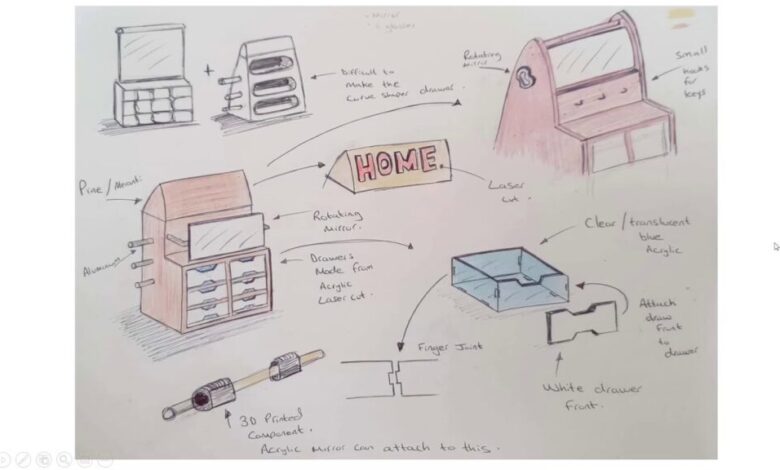 Mirror
glasses
Difficult to
make the
curve shaper drawer.
Rotating
mirror
Small
hooks
for
keys
HOME
Laser
cut.
Pine/Meranti
Rotating
Mirror.
Aluminium
Drawers
Made from
Acrylic
Laser cut.
Clear/translucent
blue
Acrylic
Attach
draw
front
to
drawer
Finger Joint
White drawer
Front.
3D Printed
Component.
Acrylic Mirror can attach to this.